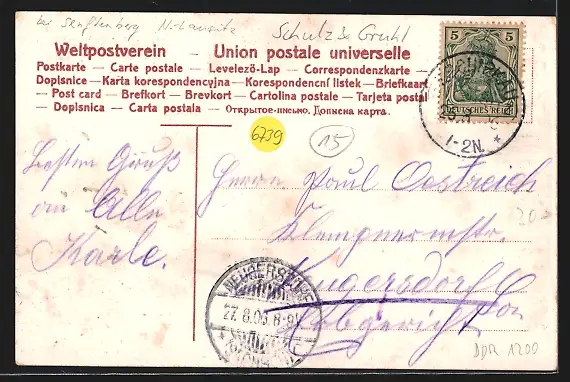 bei Senftenberg N-Lausitz
Schulz & Gruhl
Weltpostverein — Union postale universelle
Postkarte — Carte postale — Levelező-Lap — Correspondenzkarte —
Dopisnice — Karta korespondencyjna — Korespondenční lístek — Briefkaart
— Post card — Brefkort — Brevkort — Cartolina postale — Tarjeta postal
— Dopisnica — Carta postala — Открытое письмо. Дописна карта.
5 5
DEUTSCHES REICH
1-2N.
6739
15
Besten Gruß
an Alle
Karle.
Herrn Paul Oestreich
Klempnermstr.
Neugersdorf
20
NEUGERSDORF
27.8.06.8-9V
DDR 1200